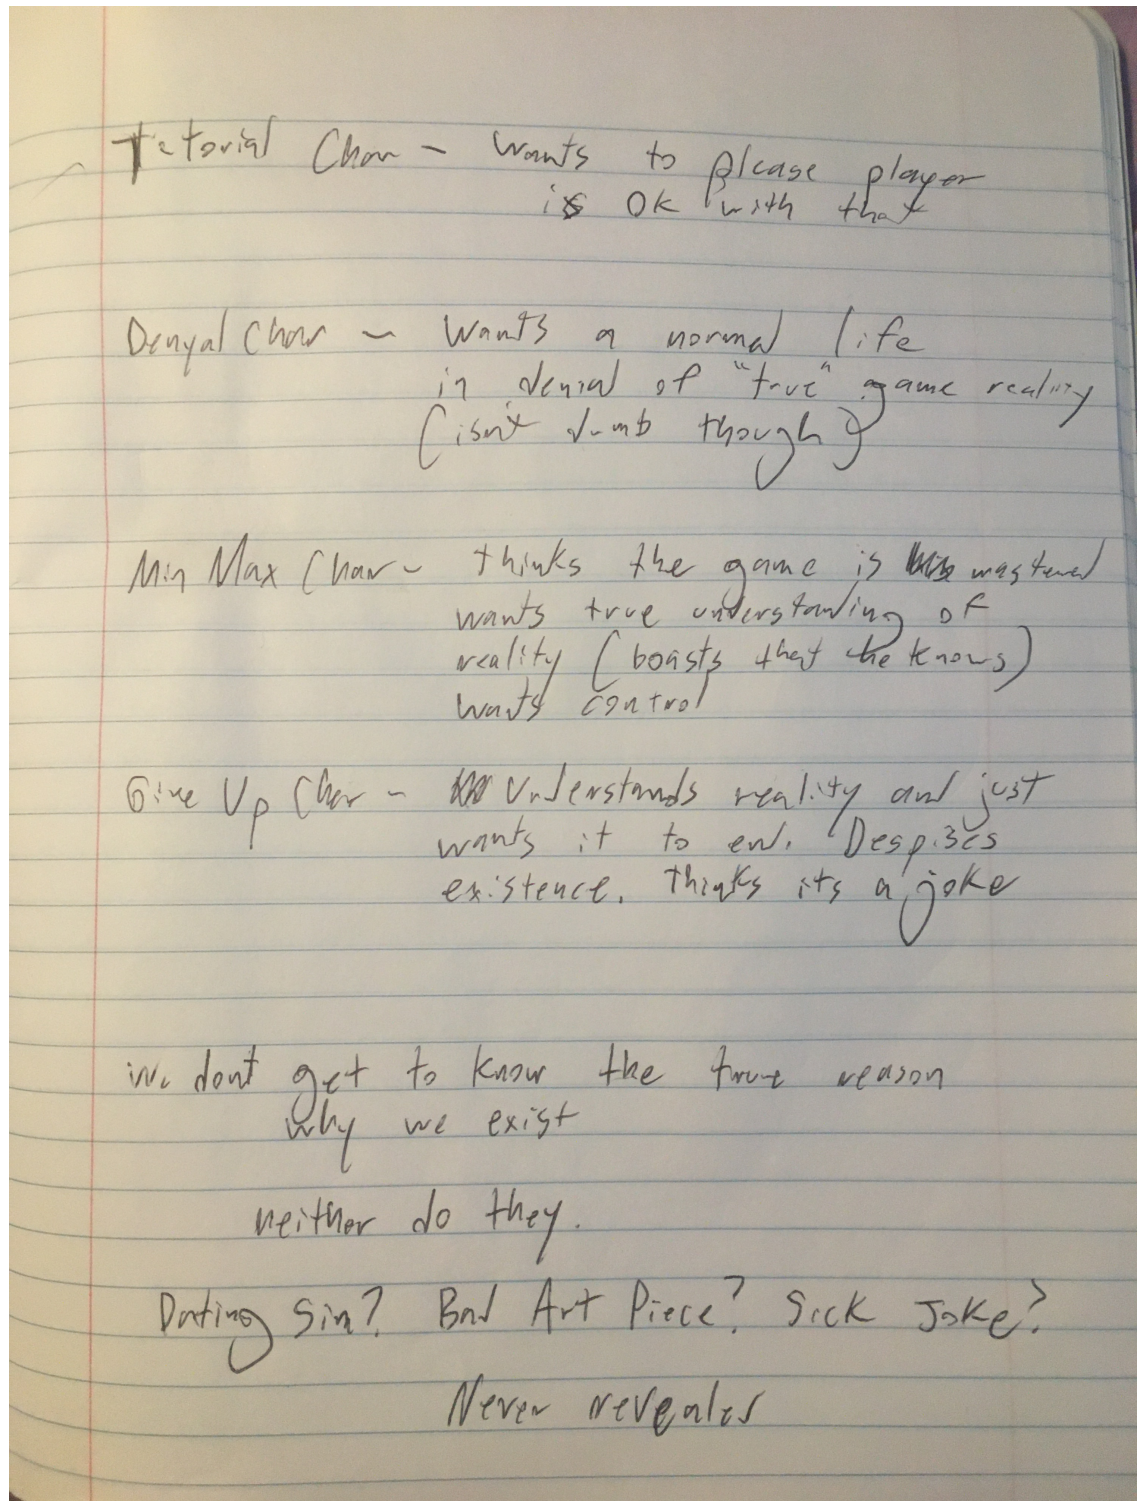 Tutorial Char - wants to please player
is OK with that
Denyal Char - Wants a normal life
in denial of "true" game reality
(isnt dumb though)
Min Max Char - thinks the game is mastered
wants true understanding of
reality (boasts that he knows)
wants control
Give Up Char - Understands reality and just
wants it to end. Despises
existence. Thinks its a joke
We dont get to know the true reason
why we exist
neither do they.
Dating Sim? Bad Art Piece? Sick Joke?
Never revealed